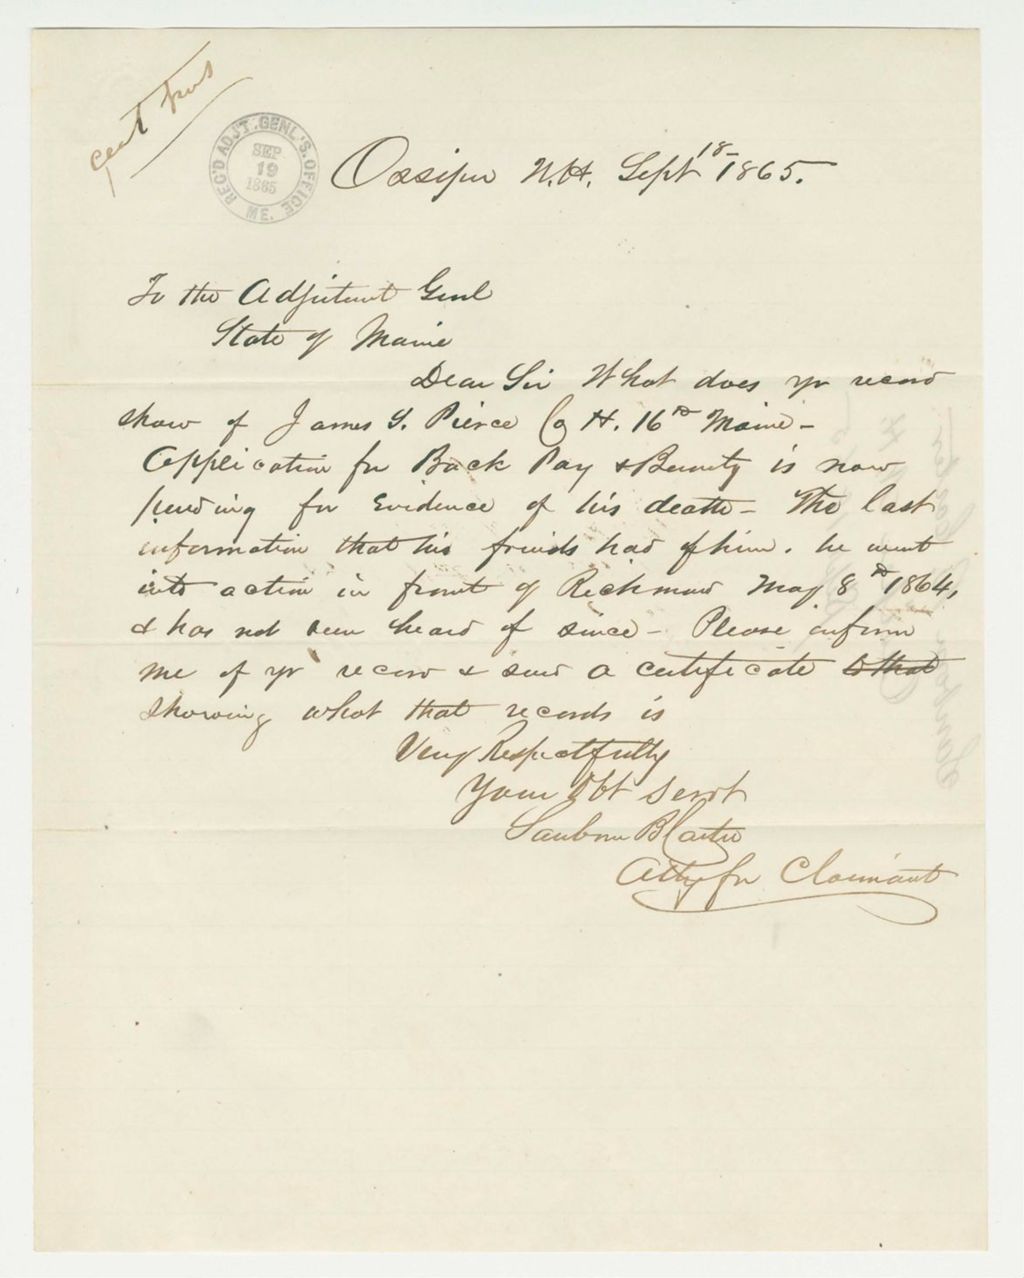 REC'D ADJ'T. GENL'S. OFFICE ME. SEP 19 1865
Ossipee N.H. Sept 18 1865.
To the Adjutant Genl
State of Maine
Dear Sir What does yr record
show of James Y. Pierce Co H. 16th Maine -
Application for Back Pay & Bounty is now
pending for Evidence of his death - The last
information that his friends had of him. he went
into action in front of Richmond May 8th 1864,
& has not been heard of since - Please inform
me of yr record & send a certificate to that
showing what that records is
Very Respectfully
Your Obt Servt
Sanborn B Carter
Atty for Claimant